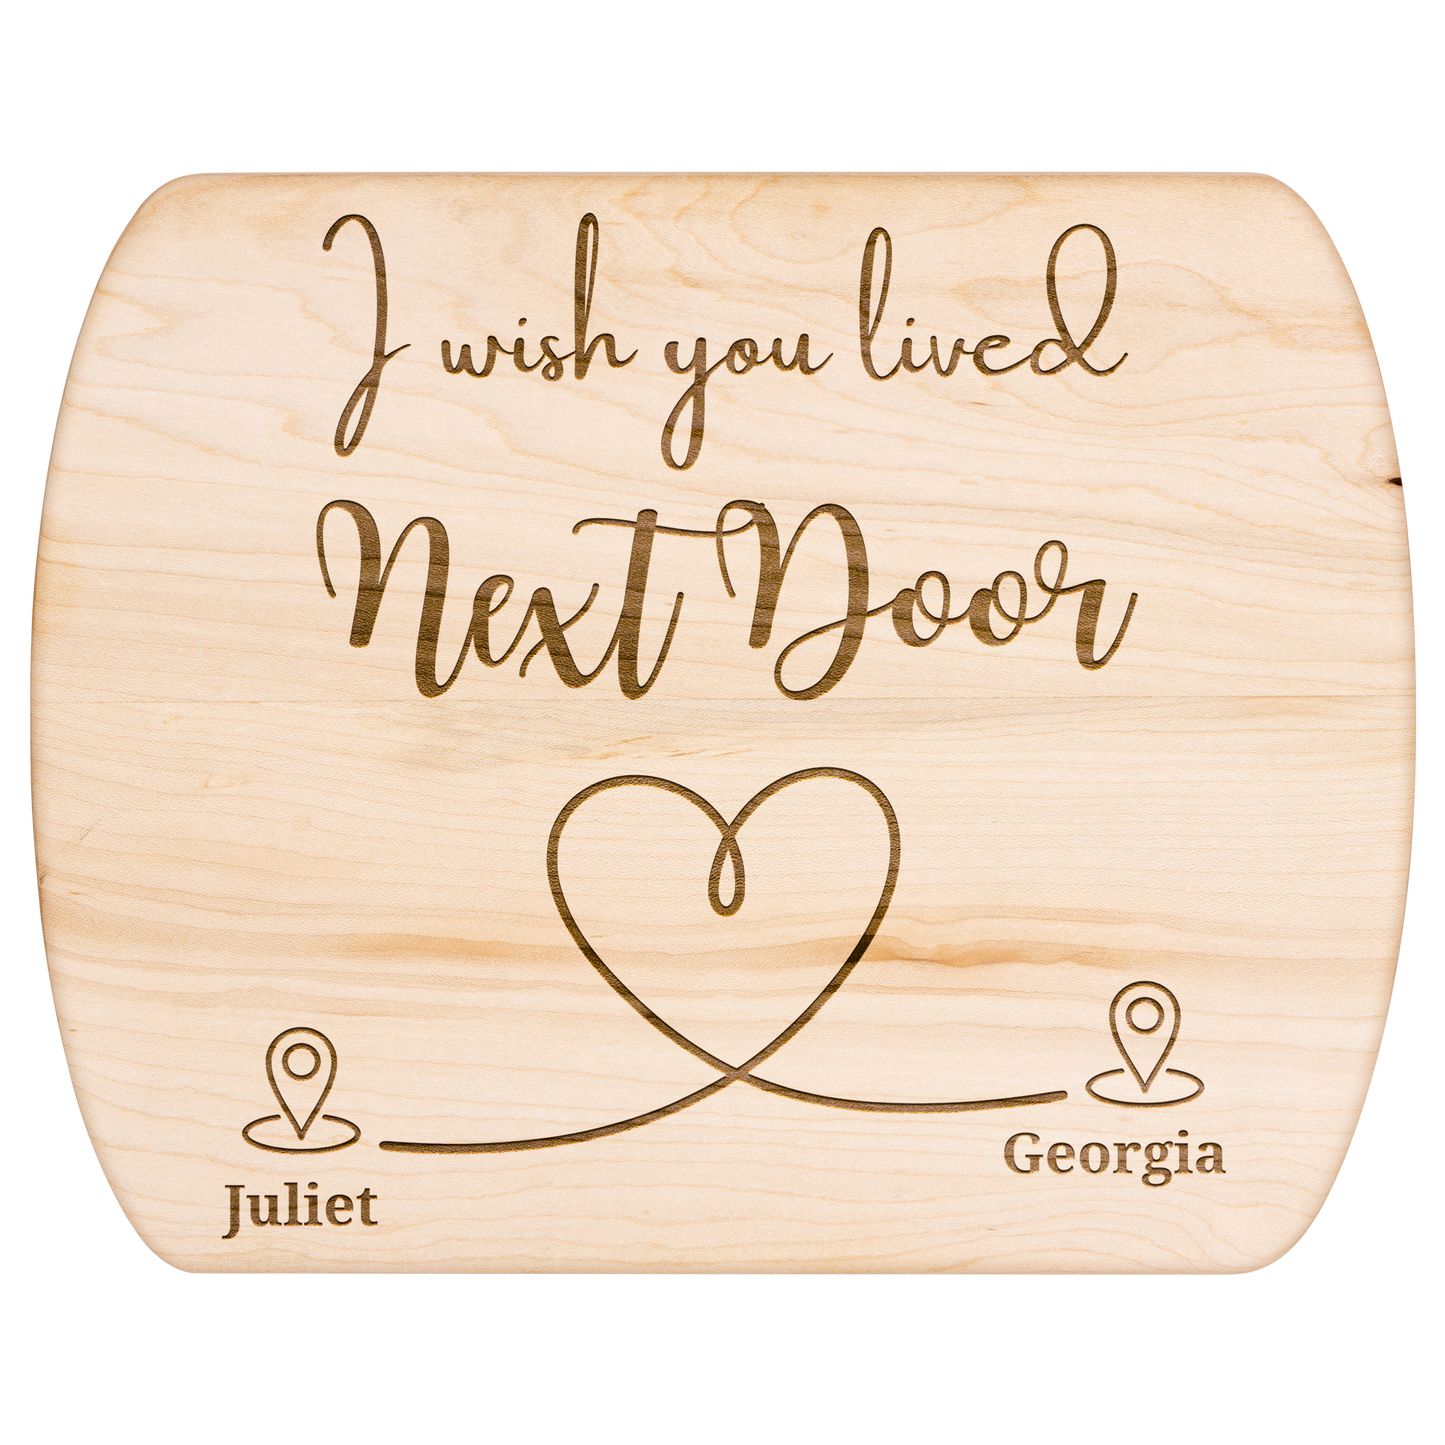 I wish you lived
Next Door
Juliet
Georgia